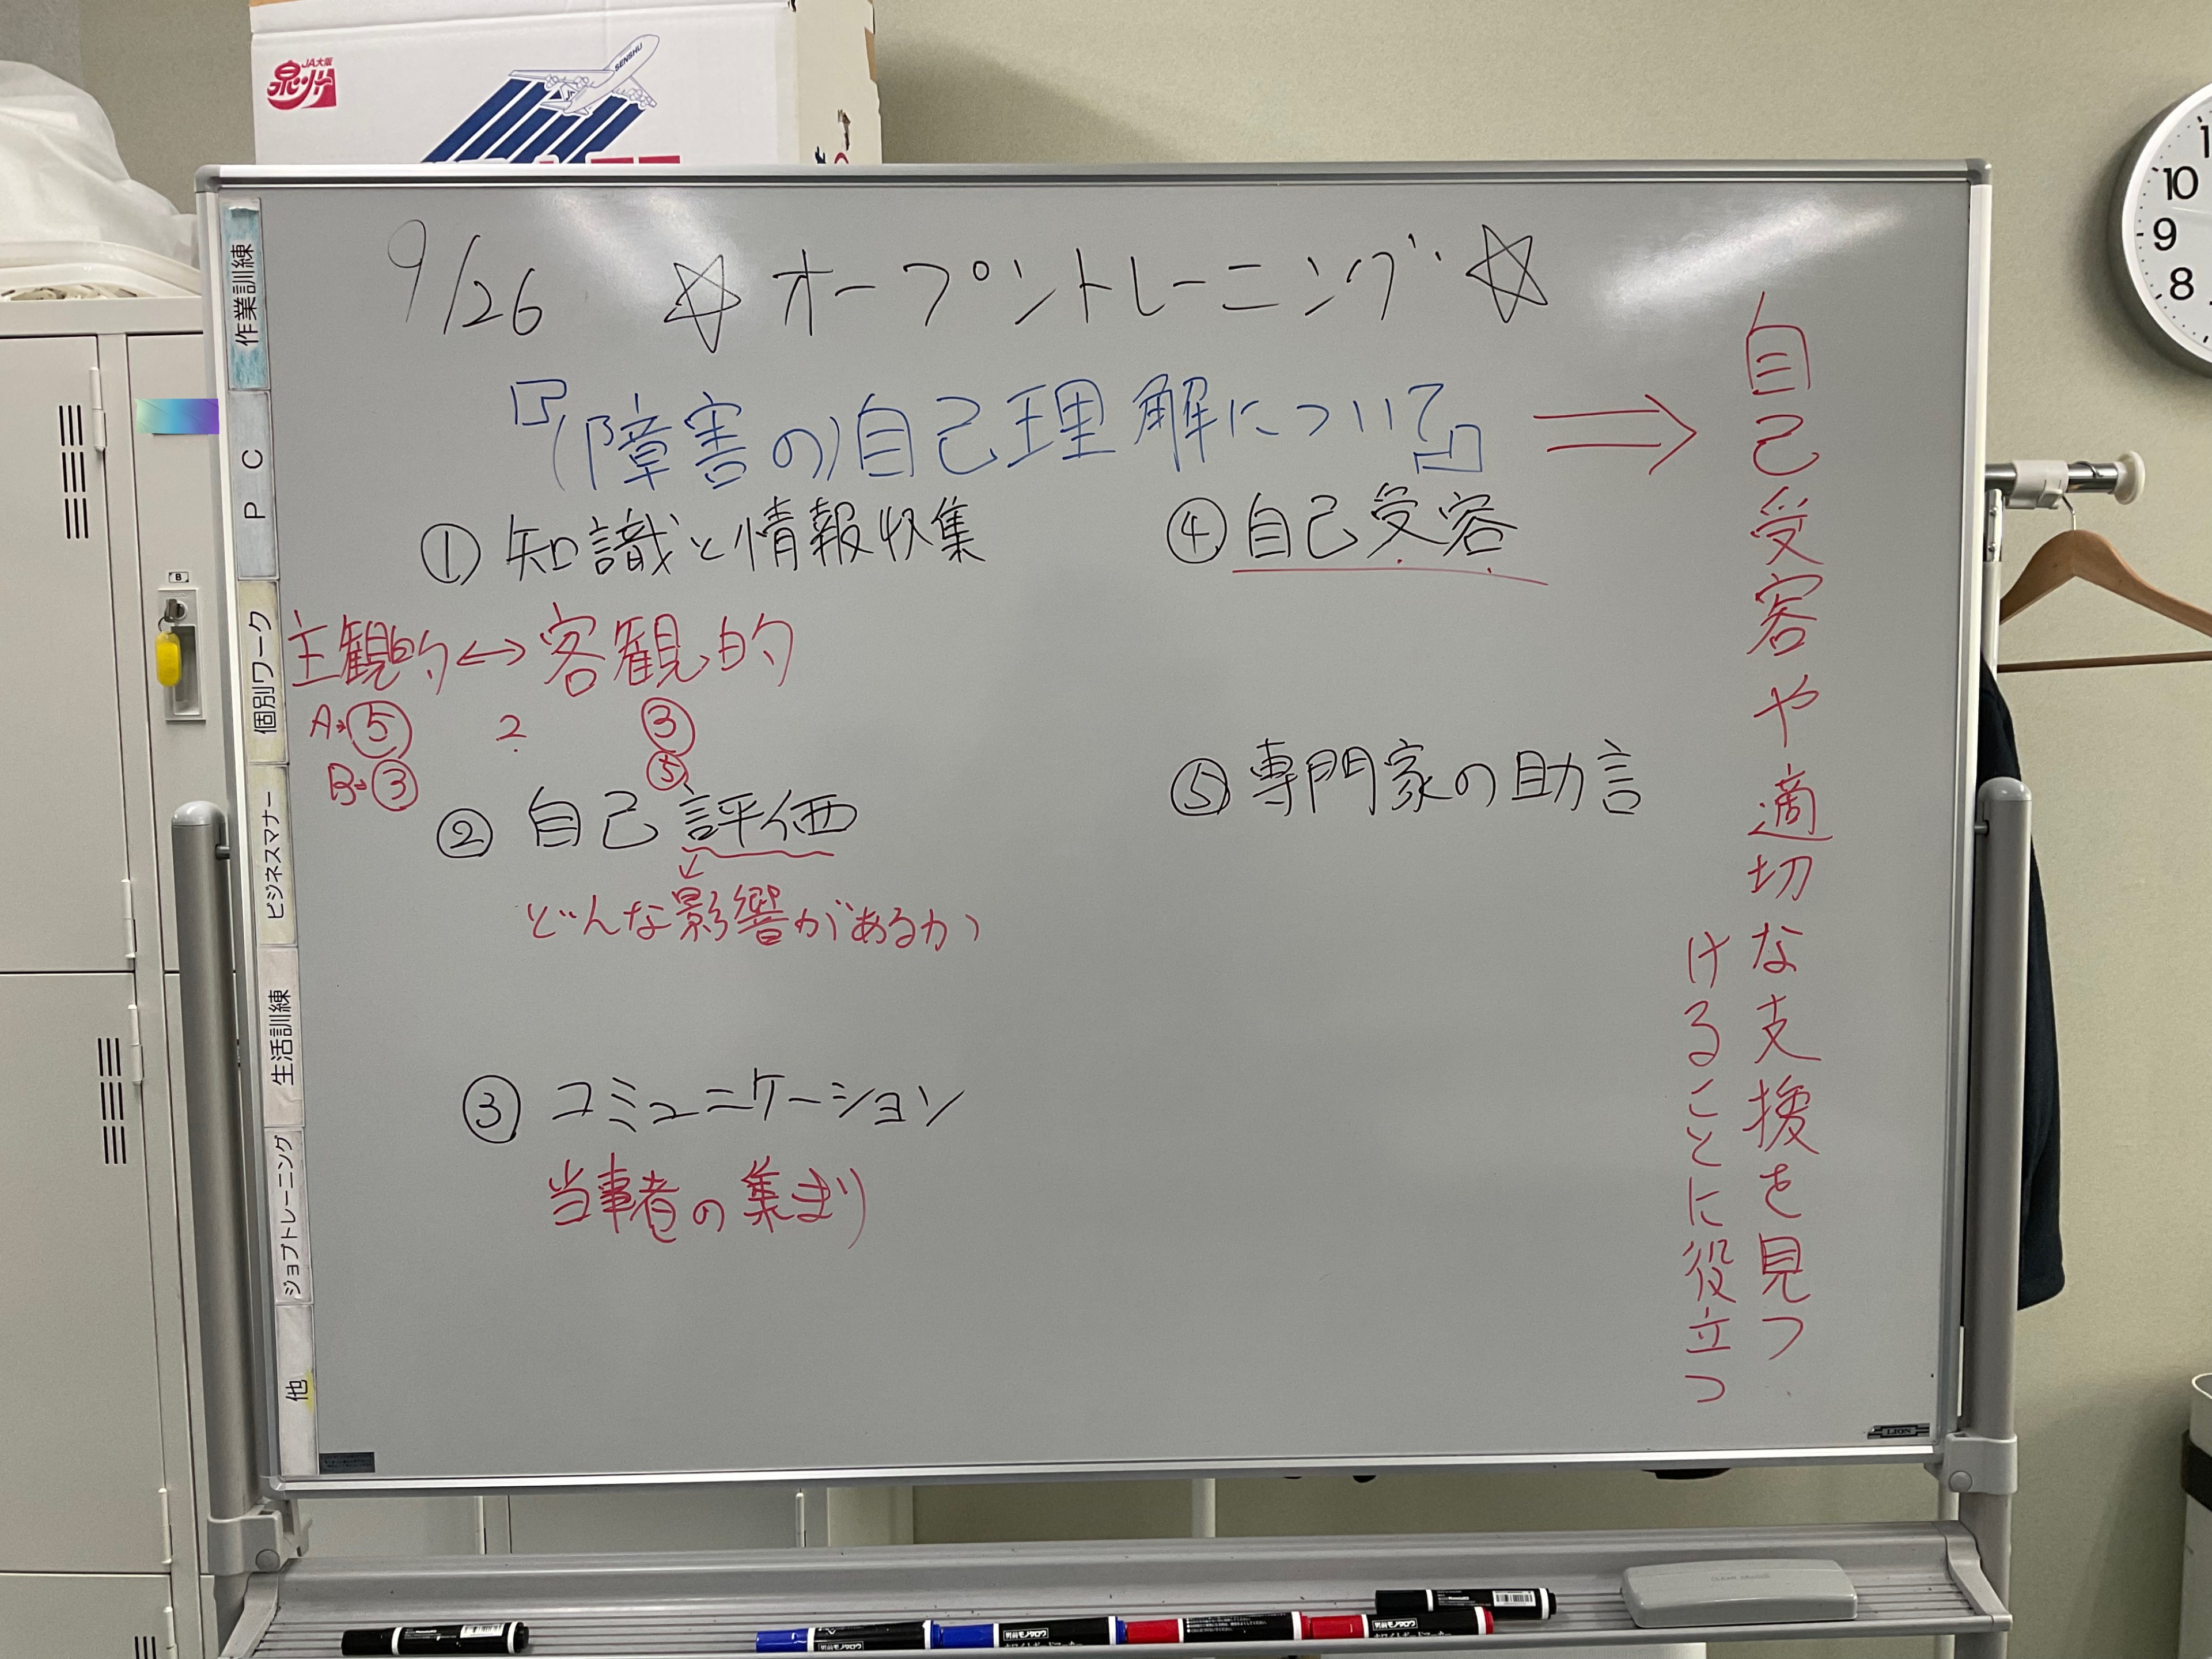 JA大阪
泉州
SENSHU
JA
9/26 ☆オープントレーニング☆
『(障害の)自己理解について』⇒
① 知識と情報収集
主観的↔客観的
A→⑤ 2 ③
B→③ ⑤
② 自己評価
どんな影響があるか
③ コミュニケーション
当事者の集まり
④ 自己受容
⑤ 専門家の助言
自己受容や適切な支援を見つ
けることに役立つ
作業訓練
PC
個別ワーク
ビジネスマナー
生活訓練
ジョブトレーニング
他
B
LION
10
9
8